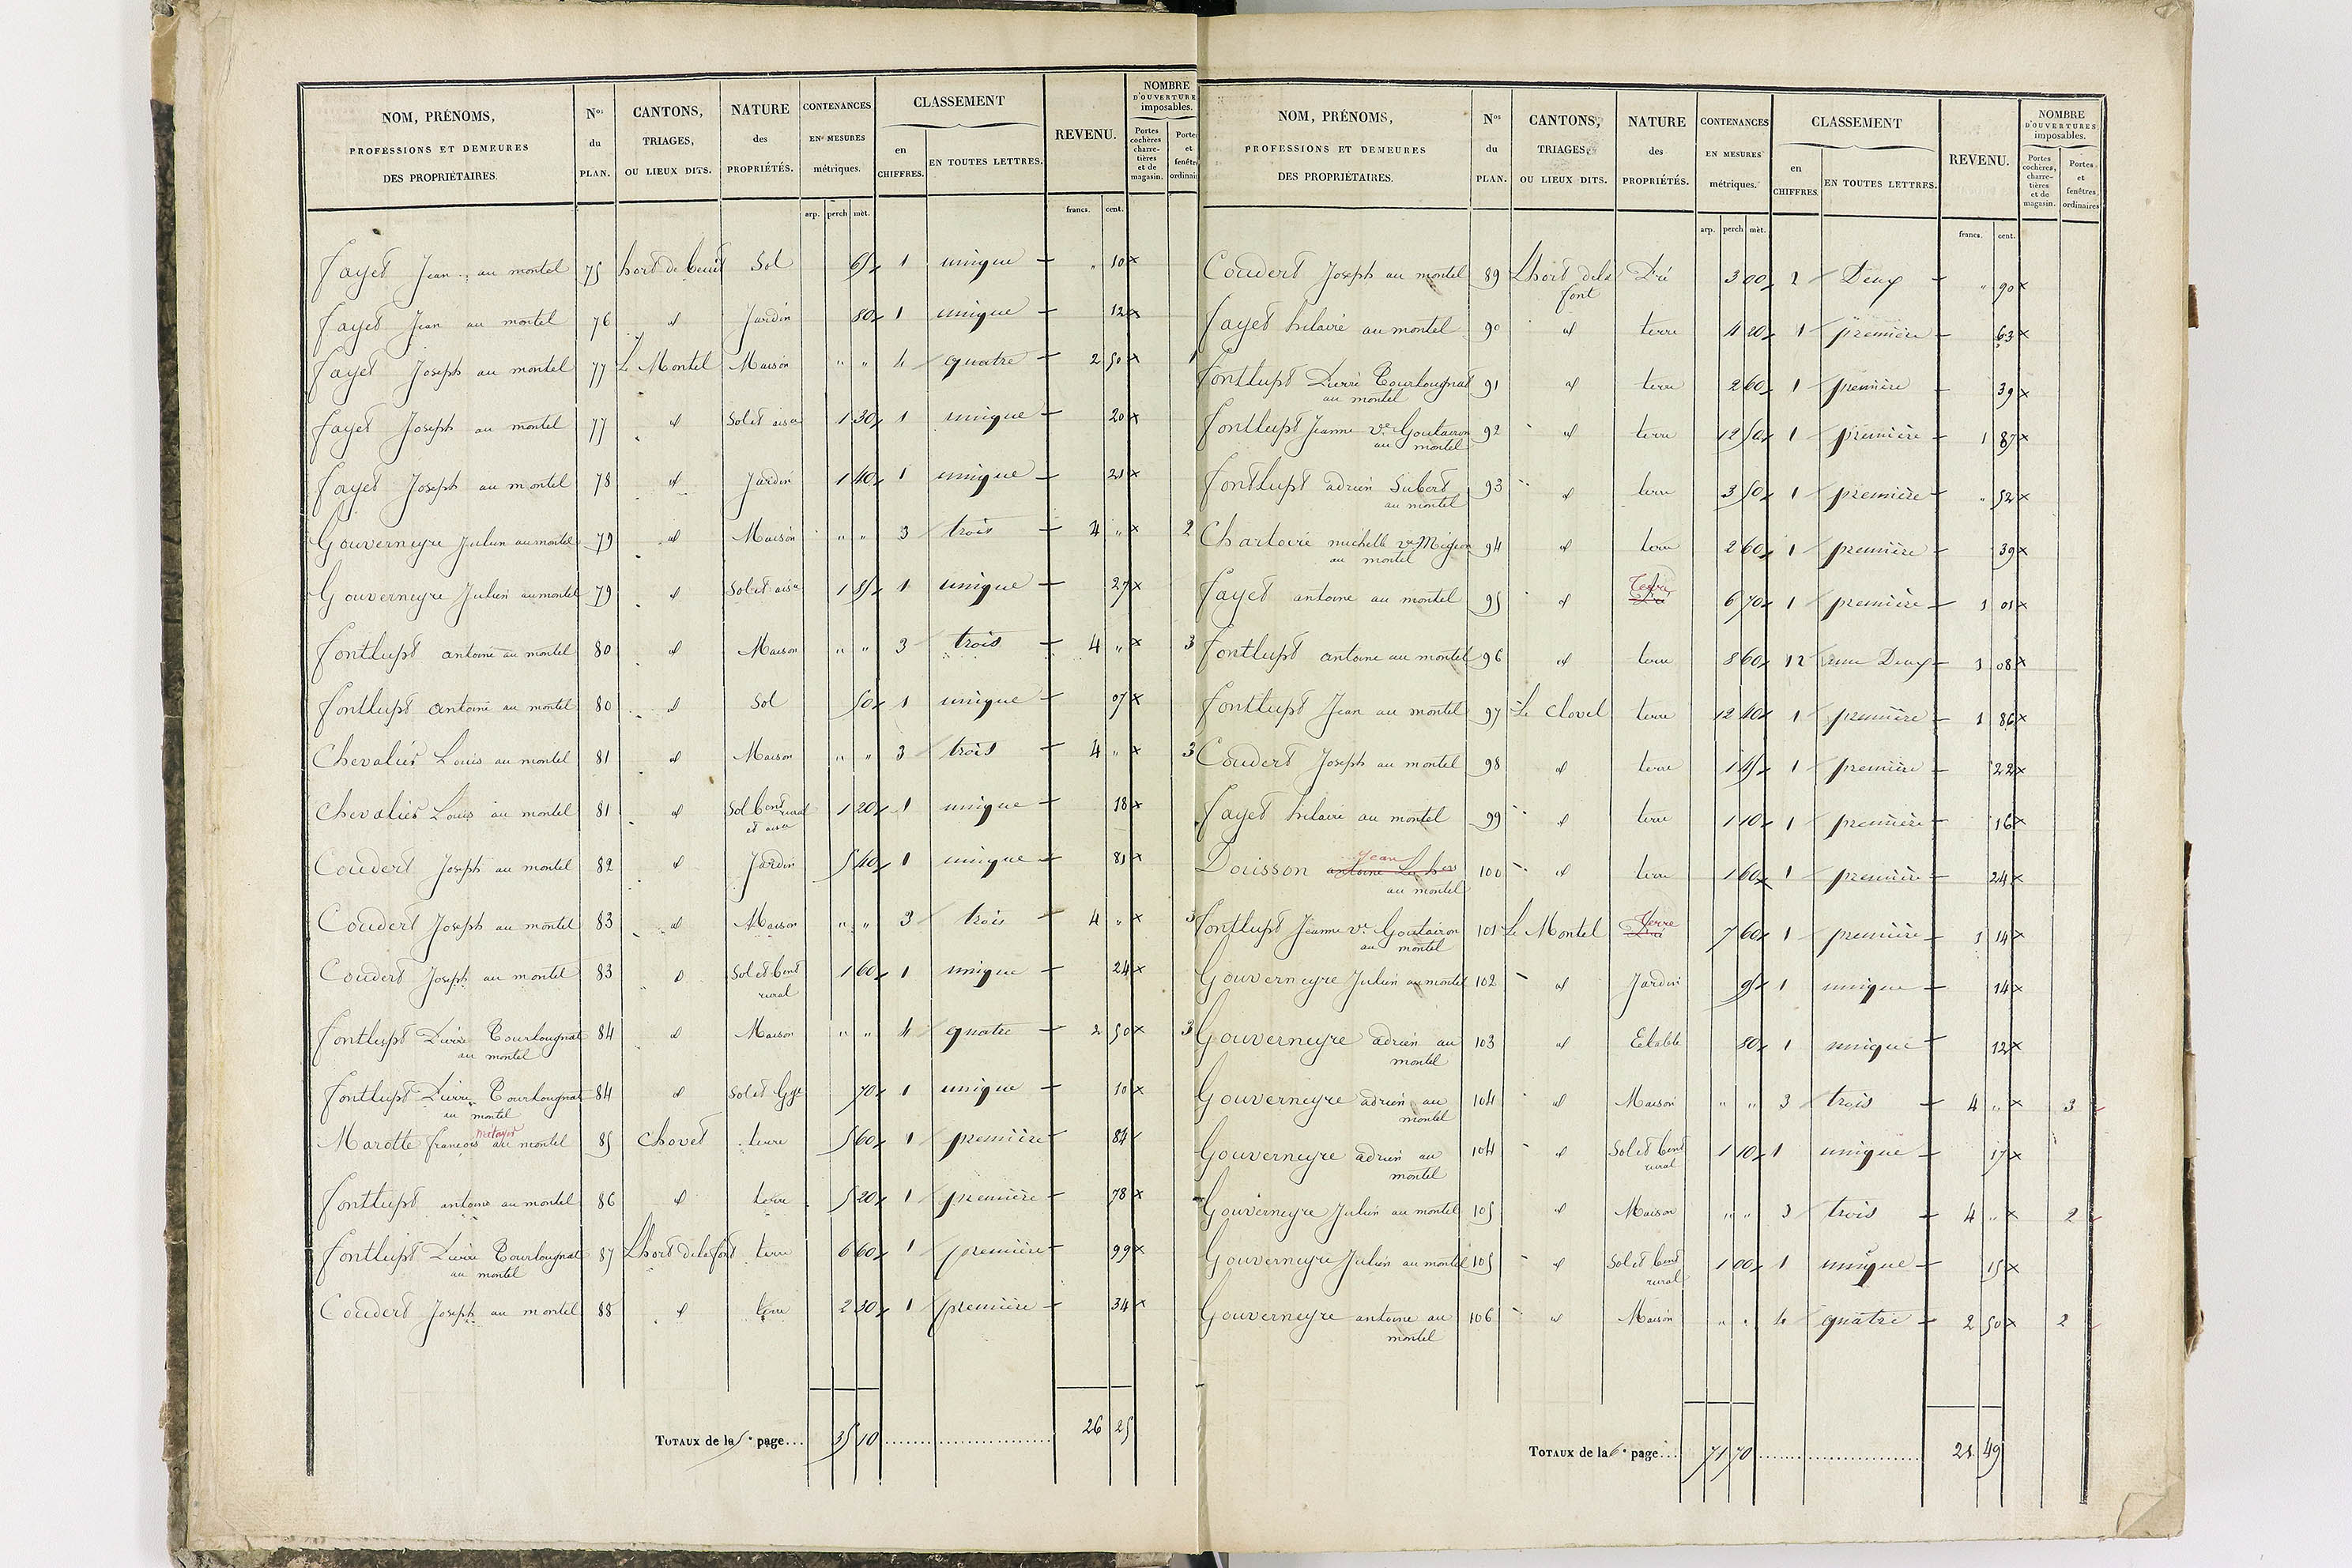 NOM, PRÉNOMS, PROFESSIONS ET DEMEURES DES PROPRIÉTAIRES. | Nos du PLAN. | CANTONS, TRIAGES, OU LIEUX DITS. | NATURE des PROPRIÉTÉS. | CONTENANCES EN MESURES métriques. | CLASSEMENT en CHIFFRES. | EN TOUTES LETTRES. | REVENU. | NOMBRE D'OUVERTURES imposables. Portes cochères charretières et de magasin. | Portes et fenêtres ordinaires
arp. perch mèt. francs. cent.
fayet Jean au montel 75 Sol 65 1 unique " 10
fayet Jean au montel 76 d Jardin 80 1 unique 12
fayet Joseph au montel 77 Le Montel Maison " " 4 quatre 2 50 1
fayet Joseph au montel 77 d Sol et aisce 1 30 1 unique 20
fayet Joseph au montel 78 d Jardin 1 40 1 unique 21
Gouverneyre Julien au montel 79 d Maison " " 3 trois 4 " 2
Gouverneyre Julien au montel 79 d Sol et aisce 1 85 1 unique 27
fontlupt antoine au montel 80 d Maison " " 3 trois 4 " 3
fontlupt antoine au montel 80 d Sol 50 1 unique 07
Chevalier Louis au montel 81 d Maison " " 3 trois 4 " 3
Chevalier Louis au montel 81 d Sol bent rural et aisce 1 20 1 unique 18
Coudert Joseph au montel 82 d Jardin 5 40 1 unique 81
Coudert Joseph au montel 83 d Maison " " 3 trois 4 " 3
Coudert Joseph au montel 83 d Sol et bent rural 1 60 1 unique 24
fontlupt Pierre Tourlougnat au montel 84 d Maison " " 4 quatre 2 50 3
fontlupt Pierre Tourlougnat au montel 84 d Sol et 70 1 unique 10
Marotte françois au montel 85 Chovet terre 5 60 1 première 84
fontlupt antoine au montel 86 d terre 5 20 1 première 78
fontlupt Pierre Tourlougnat au montel 87 Lhort de la font terre 6 60 1 première 99
Coudert Joseph au montel 88 d terre 2 30 1 première 34
TOTAUX de la 5e page... 35 10 26 25
NOM, PRÉNOMS, PROFESSIONS ET DEMEURES DES PROPRIÉTAIRES. | Nos du PLAN. | CANTONS, TRIAGES, OU LIEUX DITS. | NATURE des PROPRIÉTÉS. | CONTENANCES EN MESURES métriques. | CLASSEMENT en CHIFFRES. | EN TOUTES LETTRES. | REVENU. | NOMBRE D'OUVERTURES imposables. Portes cochères, charretières et de magasin. | Portes et fenêtres ordinaires
arp. perch mèt. francs. cent.
Coudert Joseph au montel 89 Lhort de la font Pré 3 00 2 Deux " 90
fayet hilaire au montel 90 d terre 4 20 1 première 63
fontlupt Pierre Tourlougnat au montel 91 d terre 2 60 1 première 39
fontlupt Jeanne ve Goutairon au montel 92 d terre 12 50 1 première 1 87
fontlupt adrien Subert au montel 93 d terre 3 50 1 première " 52
Chartoire michelle ve Migeon au montel 94 d terre 2 60 1 première 39
fayet antoine au montel 95 d Terre Pré 6 70 1 première 1 01
fontlupt antoine au montel 96 d terre 8 60 1 2 une Deux 1 08
fontlupt Jean au montel 97 Le Clovel terre 12 40 1 première 1 86
Coudert Joseph au montel 98 d terre 1 45 1 première 22
fayet hilaire au montel 99 d terre 1 10 1 première 16
Douisson Jean antoine Les hers au montel 100 d terre 1 60 1 première 24
fontlupt Jeanne ve Goutairon au montel 101 Le Montel Terre Pré 7 60 1 première 1 14
Gouverneyre Julien au montel 102 d Jardin 95 1 unique 14
Gouverneyre adrien au montel 103 d Etable 80 1 unique 12
Gouverneyre adrien au montel 104 d Maison " " 3 trois 4 " 3
Gouverneyre adrien au montel 104 d Sol et bent rural 1 10 1 unique 17
Gouverneyre Julien au montel 105 d Maison " " 3 trois 4 " 2
Gouverneyre Julien au montel 105 d Sol et bent rural 1 00 1 unique 15
Gouverneyre antoine au montel 106 d Maison " " 4 quatre 2 50 2
TOTAUX de la 6e page... 71 70 21 49